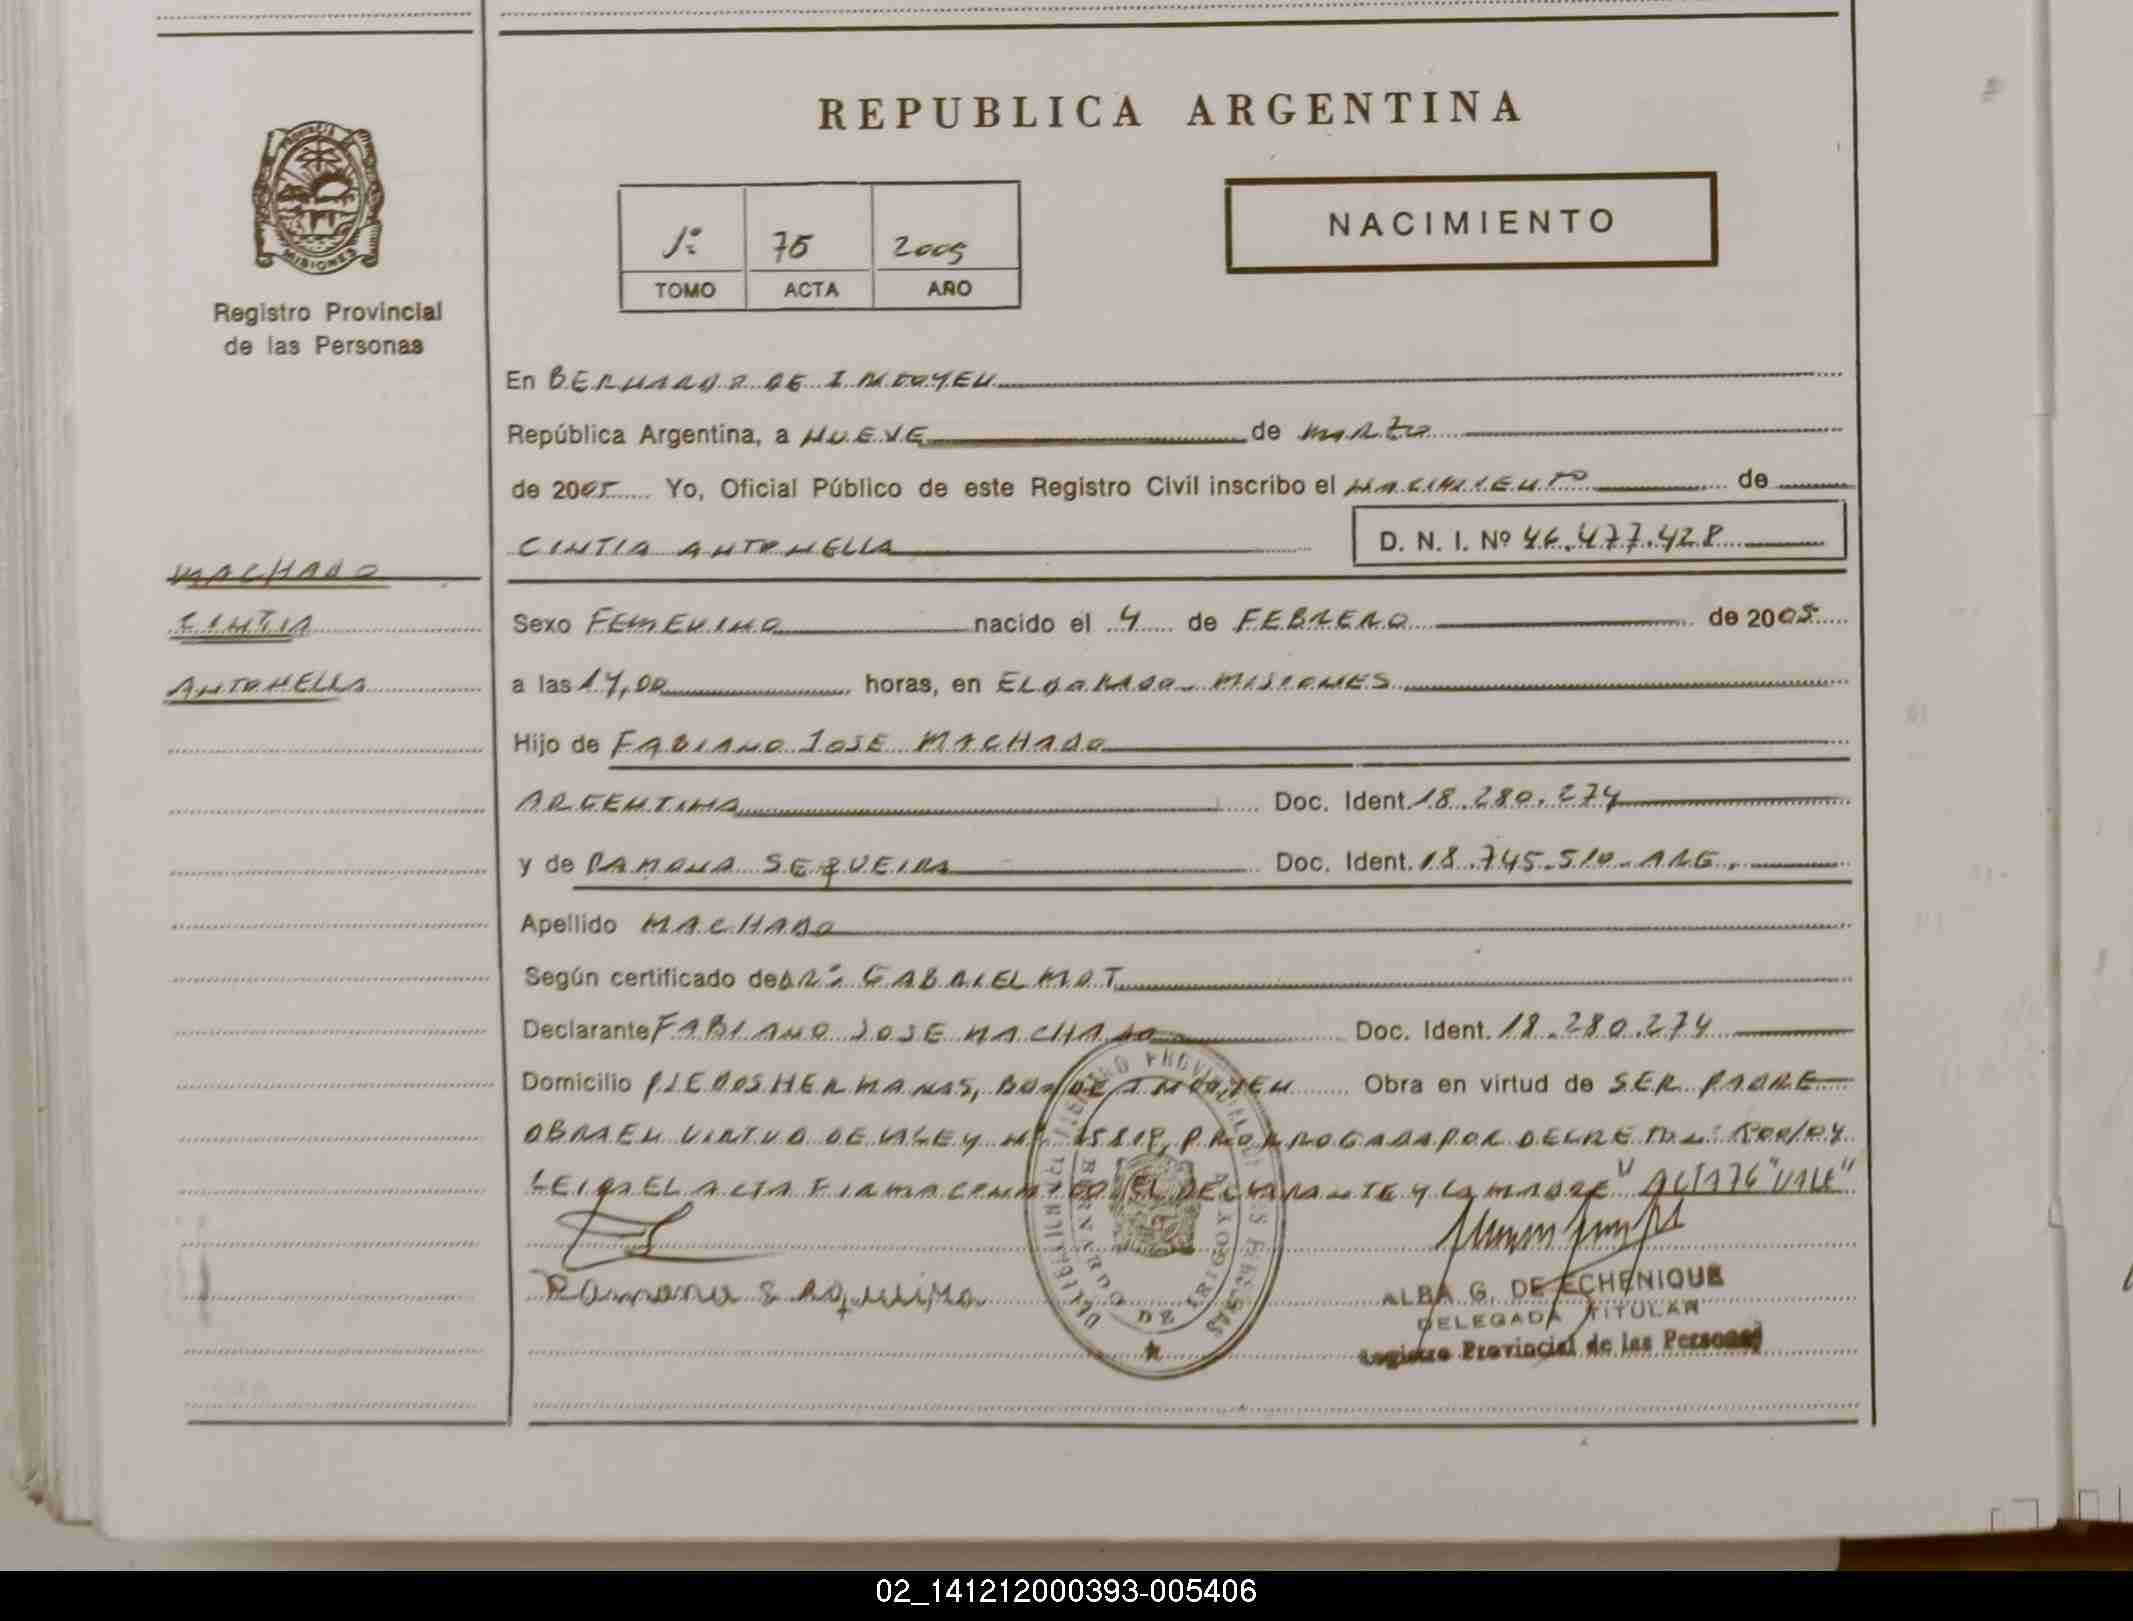 REPUBLICA ARGENTINA
PROVINCIA
MISIONES
Registro Provincial
de las Personas
1º 76 2005
TOMO ACTA AÑO
NACIMIENTO
En BERNARDO DE IRIGOYEN
República Argentina, a NUEVE de MARZO
de 2005 Yo, Oficial Público de este Registro Civil inscribo el NACIMIENTO de
CINTIA ANTONELLA D. N. I. Nº 46.477.428
MACHADO
CINTIA
ANTONELLA
Sexo FEMENINO nacido el 4 de FEBRERO de 2005
a las 17,00 horas, en ELDORADO - MISIONES
Hijo de FABIANO JOSE MACHADO
ARGENTINA Doc. Ident. 18.280.274
y de RAMONA SEQUEIRA Doc. Ident. 18.745.510 - ARG.
Apellido MACHADO
Según certificado de DR: GABRIEL MOT
Declarante FABIANO JOSE MACHADO Doc. Ident. 18.280.274
Domicilio PIEDOSHERMANAS, BDO DE IRIGOYEN Obra en virtud de SER PADRE
OBRA EN VIRTUD DE LA LEY Nº 25819, PRORROGADA POR DECRETO
LEIDA EL ACTA FIRMA CONMIGO EL DECLARANTE Y LA MADRE "ACTA 76 "VALE"
Ramona Sequeira
REGISTRO PROVINCIAL DE LAS PERSONAS
BERNARDO DE IRIGOYEN
ALBA G. DE ECHENIQUE
DELEGADA TITULAR
Registro Provincial de las Personas
02_141212000393-005406